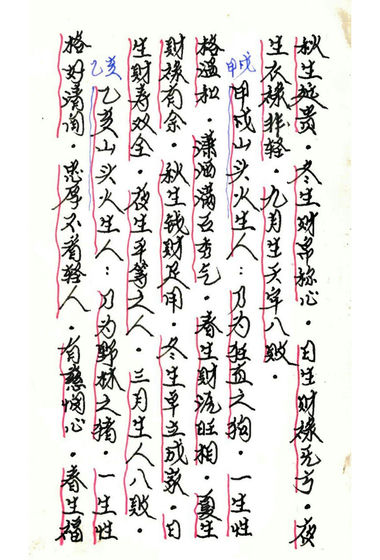 秋生好贵·冬生财帛称心·日生财禄无亏·夜
生衣禄非轻·九月生天牢八败·
甲戌
甲戌山头火生人:乃为狂直之狗·一生性
格温和·潇洒满面秀气·春生财流旺相·夏生
财禄有余·秋生钱财足用·冬生卓立成家·日
生财寿双全·夜生平等之人·三月生人八败·
乙亥
乙亥山头火生人:乃为野林之猪·一生性
格好清闲·忠厚不看轻人·有慈悯心·春生福